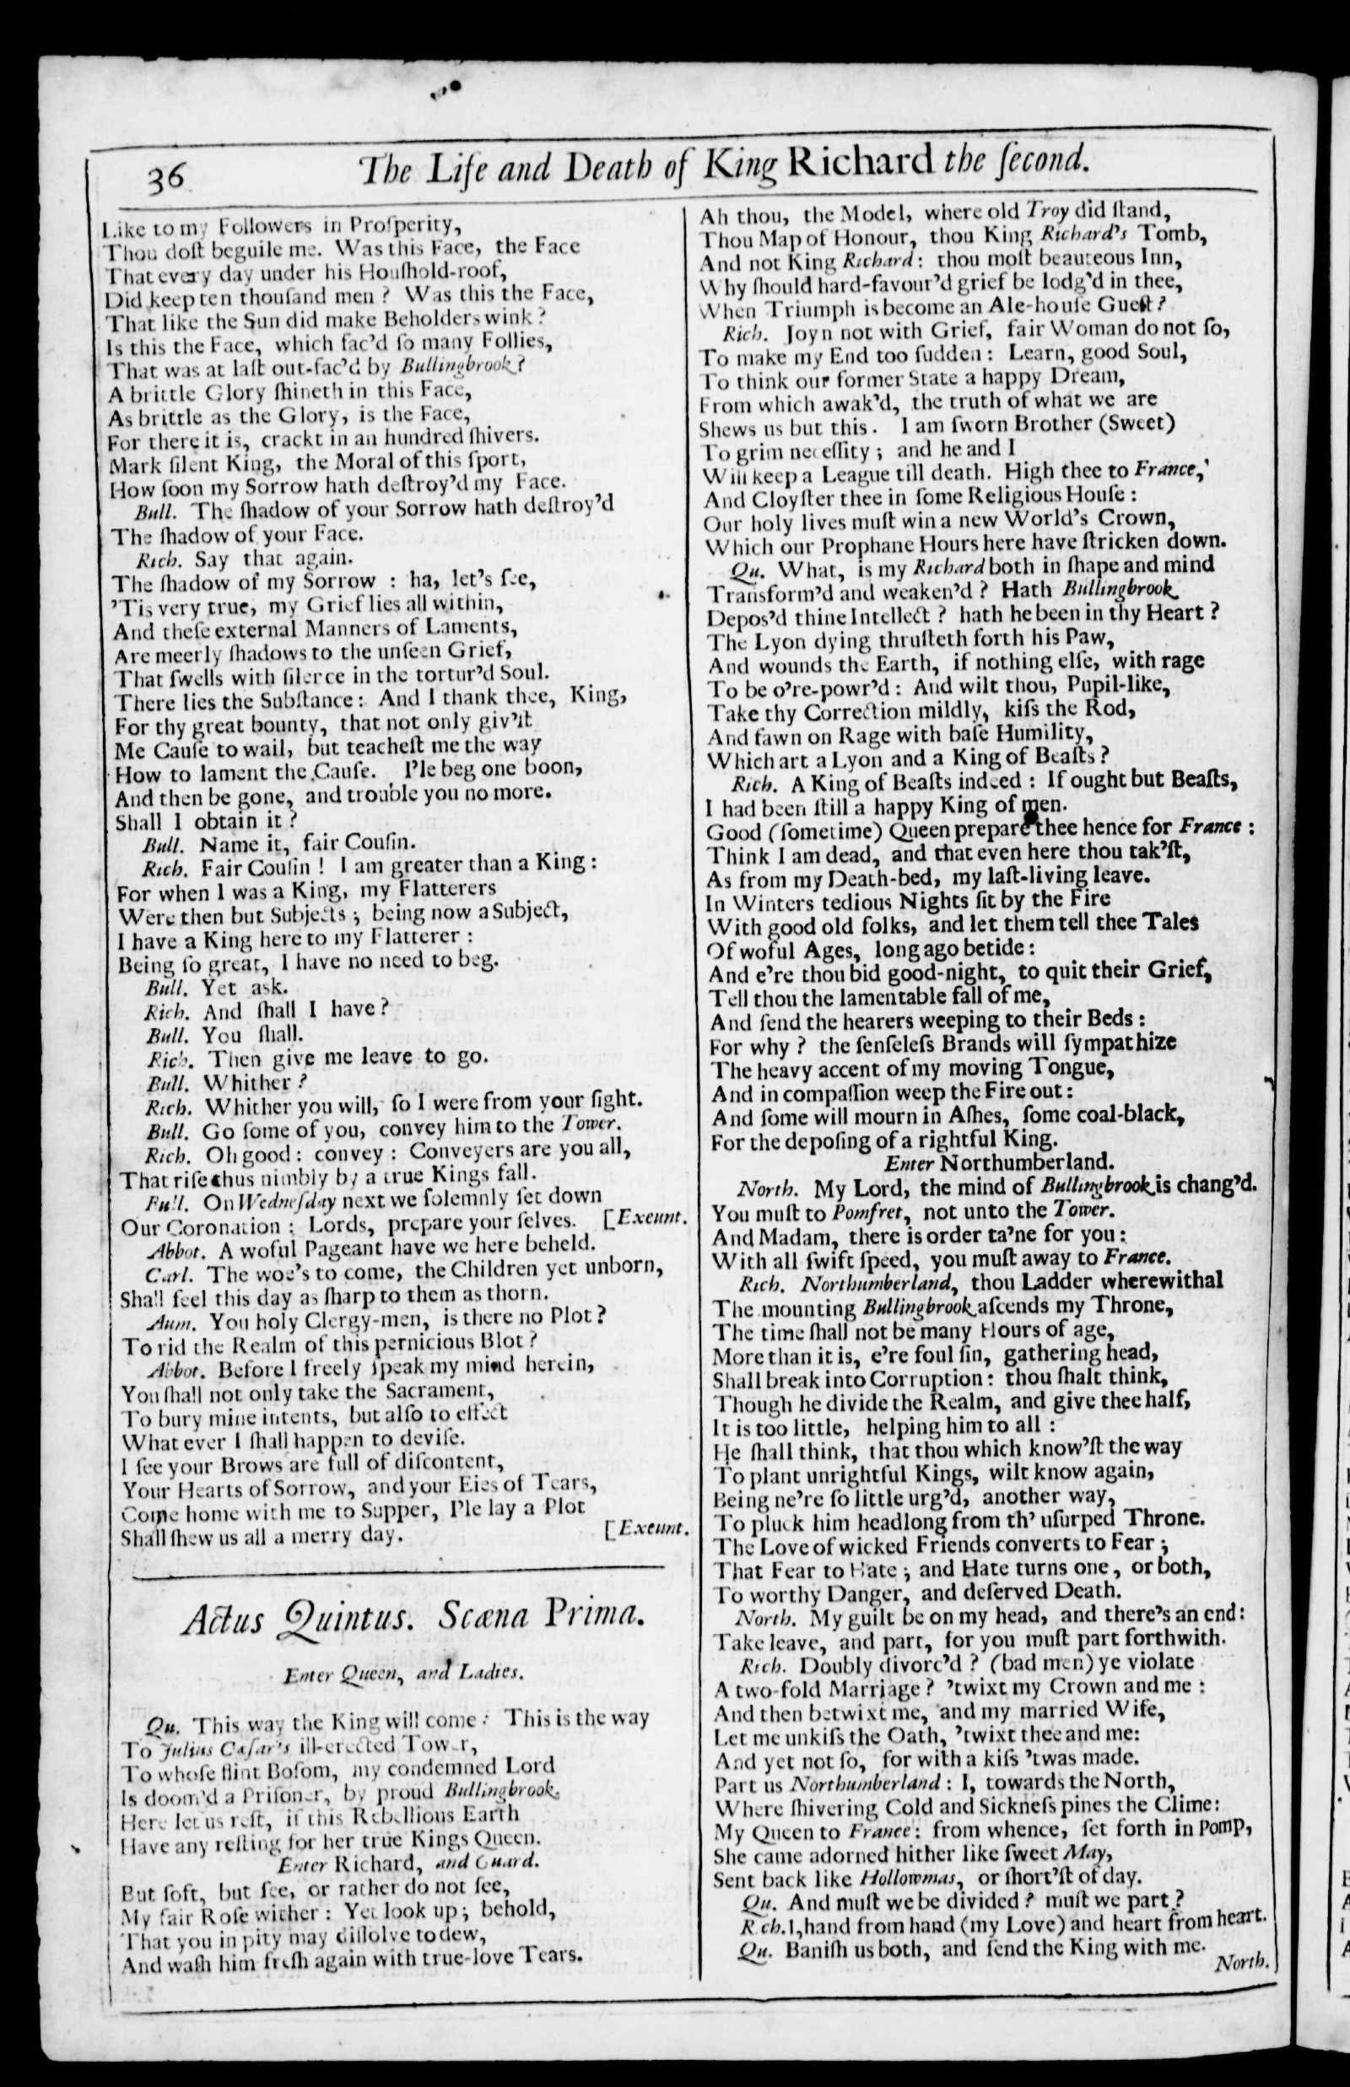 36
The Life and Death of King Richard the ſecond.
Like to my Followers in Proſperity,
Thou doſt beguile me. Was this Face, the Face
That every day under his Houſhold-roof,
Did keep ten thouſand men? Was this the Face,
That like the Sun did make Beholders wink?
Is this the Face, which fac'd ſo many Follies,
That was at laſt out-fac'd by Bullingbrook?
A brittle Glory ſhineth in this Face,
As brittle as the Glory, is the Face,
For there it is, crackt in an hundred ſhivers.
Mark ſilent King, the Moral of this ſport,
How ſoon my Sorrow hath deſtroy'd my Face.
Bull. The ſhadow of your Sorrow hath deſtroy'd
The ſhadow of your Face.
Rich. Say that again.
The ſhadow of my Sorrow : ha, let's ſee,
'Tis very true, my Grief lies all within,
And theſe external Manners of Laments,
Are meerly ſhadows to the unſeen Grief,
That ſwells with ſilerce in the tortur'd Soul.
There lies the Subſtance: And I thank thee, King,
For thy great bounty, that not only giv'ſt
Me Cauſe to wail, but teacheſt me the way
How to lament the Cauſe. I'le beg one boon,
And then be gone, and trouble you no more.
Shall I obtain it?
Bull. Name it, fair Couſin.
Rich. Fair Couſin! I am greater than a King:
For when I was a King, my Flatterers
Were then but Subjects; being now a Subject,
I have a King here to my Flatterer :
Being ſo great, I have no need to beg.
Bull. Yet ask.
Rich. And ſhall I have?
Bull. You ſhall.
Rich. Then give me leave to go.
Bull. Whither?
Rich. Whither you will, ſo I were from your ſight.
Bull. Go ſome of you, convey him to the Tower.
Rich. Oh good: convey: Conveyers are you all,
That riſe thus nimbly by a true Kings fall.
Bull. On Wedneſday next we ſolemnly ſet down
Our Coronation: Lords, prepare your ſelves. [Exeunt.
Abbot. A woful Pageant have we here beheld.
Carl. The woe's to come, the Children yet unborn,
Shall feel this day as ſharp to them as thorn.
Aum. You holy Clergy-men, is there no Plot?
To rid the Realm of this pernicious Blot?
Abbot. Before I freely ſpeak my mind herein,
You ſhall not only take the Sacrament,
To bury mine intents, but alſo to effect
What ever I ſhall happen to deviſe.
I ſee your Brows are full of diſcontent,
Your Hearts of Sorrow, and your Eies of Tears,
Come home with me to Supper, I'le lay a Plot
Shall ſhew us all a merry day. [Exeunt.
Actus Quintus. Scæna Prima.
Enter Queen, and Ladies.
Qu. This way the King will come: This is the way
To Julius Cæſar's ill-erected Tower,
To whoſe flint Boſom, my condemned Lord
Is doom'd a Priſoner, by proud Bullingbrook.
Here let us reſt, if this Rebellious Earth
Have any reſting for her true Kings Queen.
Enter Richard, and Guard.
But ſoft, but ſee, or rather do not ſee,
My fair Roſe wither: Yet look up; behold,
That you in pity may diſſolve to dew,
And waſh him freſh again with true-love Tears.
Ah thou, the Model, where old Troy did ſtand,
Thou Map of Honour, thou King Richard's Tomb,
And not King Richard: thou moſt beauteous Inn,
Why ſhould hard-favour'd grief be lodg'd in thee,
When Triumph is become an Ale-houſe Gueſt?
Rich. Joyn not with Grief, fair Woman do not ſo,
To make my End too ſudden: Learn, good Soul,
To think our former State a happy Dream,
From which awak'd, the truth of what we are
Shews us but this. I am ſworn Brother (Sweet)
To grim neceſſity; and he and I
Will keep a League till death. High thee to France,
And Cloyſter thee in ſome Religious Houſe:
Our holy lives muſt win a new World's Crown,
Which our Prophane Hours here have ſtricken down.
Qu. What, is my Richard both in ſhape and mind
Transform'd and weaken'd? Hath Bullingbrook
Depos'd thine Intellect? hath he been in thy Heart?
The Lyon dying thruſteth forth his Paw,
And wounds the Earth, if nothing elſe, with rage
To be o're-powr'd: And wilt thou, Pupil-like,
Take thy Correction mildly, kiſs the Rod,
And fawn on Rage with baſe Humility,
Which art a Lyon and a King of Beaſts?
Rich. A King of Beaſts indeed: If ought but Beaſts,
I had been ſtill a happy King of men.
Good (ſometime) Queen prepare thee hence for France:
Think I am dead, and that even here thou tak'ſt,
As from my Death-bed, my laſt-living leave.
In Winters tedious Nights ſit by the Fire
With good old folks, and let them tell thee Tales
Of woful Ages, long ago betide:
And e're thou bid good-night, to quit their Grief,
Tell thou the lamentable fall of me,
And ſend the hearers weeping to their Beds:
For why? the ſenſeleſs Brands will ſympathize
The heavy accent of my moving Tongue,
And in compaſſion weep the Fire out:
And ſome will mourn in Aſhes, ſome coal-black,
For the depoſing of a rightful King.
Enter Northumberland.
North. My Lord, the mind of Bullingbrook is chang'd.
You muſt to Pomfret, not unto the Tower.
And Madam, there is order ta'ne for you:
With all ſwift ſpeed, you muſt away to France.
Rich. Northumberland, thou Ladder wherewithal
The mounting Bullingbrook aſcends my Throne,
The time ſhall not be many Hours of age,
More than it is, e're foul ſin, gathering head,
Shall break into Corruption: thou ſhalt think,
Though he divide the Realm, and give thee half,
It is too little, helping him to all:
He ſhall think, that thou which know'ſt the way
To plant unrightful Kings, wilt know again,
Being ne're ſo little urg'd, another way,
To pluck him headlong from th' uſurped Throne.
The Love of wicked Friends converts to Fear;
That Fear to Hate; and Hate turns one, or both,
To worthy Danger, and deſerved Death.
North. My guilt be on my head, and there's an end:
Take leave, and part, for you muſt part forthwith.
Rich. Doubly divorc'd? (bad men) ye violate
A two-fold Marriage? 'twixt my Crown and me:
And then betwixt me, and my married Wife,
Let me unkiſs the Oath, 'twixt thee and me:
And yet not ſo, for with a kiſs 'twas made.
Part us Northumberland: I, towards the North,
Where ſhivering Cold and Sickneſs pines the Clime:
My Queen to France: from whence, ſet forth in Pomp,
She came adorned hither like ſweet May,
Sent back like Hollowmas, or ſhort'ſt of day.
Qu. And muſt we be divided? muſt we part?
Rich. I, hand from hand (my Love) and heart from heart.
Qu. Baniſh us both, and ſend the King with me.
North.